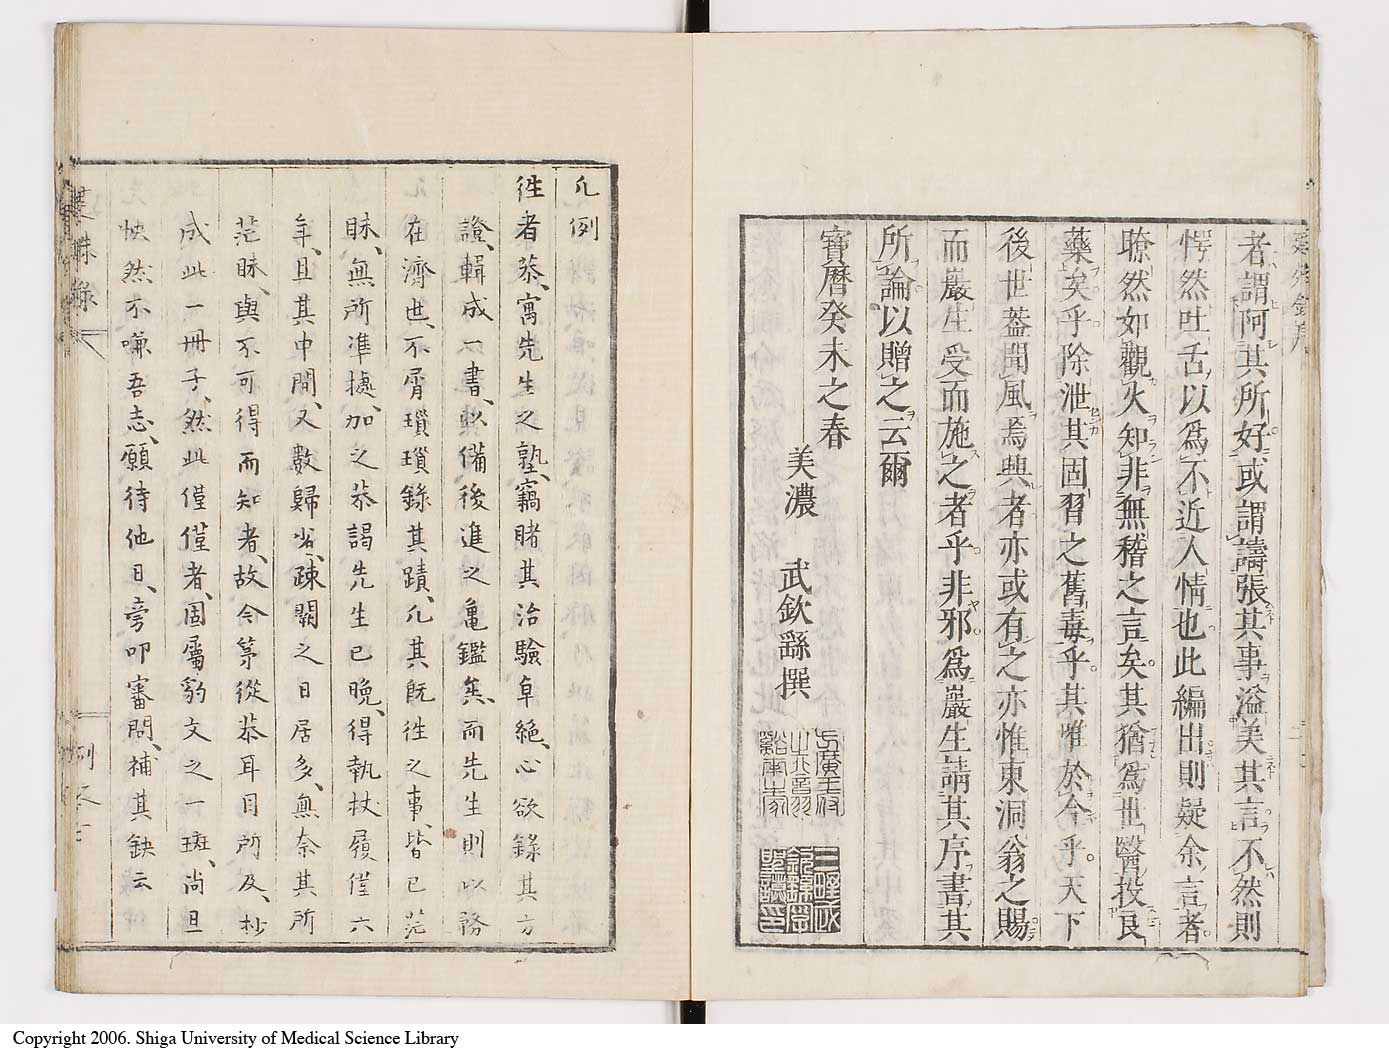 者謂阿其所好或謂譸張其事溢美其言不然則
愕然吐舌以爲不近人情也此編出則疑余言者
瞭然如觀火知非無稽之言矣其猶爲世醫投良
藥矣乎除泄其固習之舊毒乎其唯於今乎天下
後世蓋聞風焉興者亦或有之亦惟東洞翁之賜
而巖生受而施之者乎非邪爲巖生請其序書其
所論以贈之云爾
寶曆癸未之春
美濃 武欽繇撰
凡例
徃者恭寓先生之塾竊睹其治驗卓絶心欲錄其方
證輯成一書以備後進之龜鑑焉而先生則以務
在濟世不屑瑣瑣錄其蹟凡其旣徃之事皆已茫
昧無所准據加之恭謁先生已晩得執杖履僅六
年且其中間又數歸省疎闊之日居多無奈其所
茫昧與不可得而知者故今第從恭耳目所及抄
成此一冊子然此僅僅者固屬豹文之一斑尚且
怏然不慊吾志願待他日旁叩審問補其缺云
例之
Copyright 2006. Shiga University of Medical Science Library